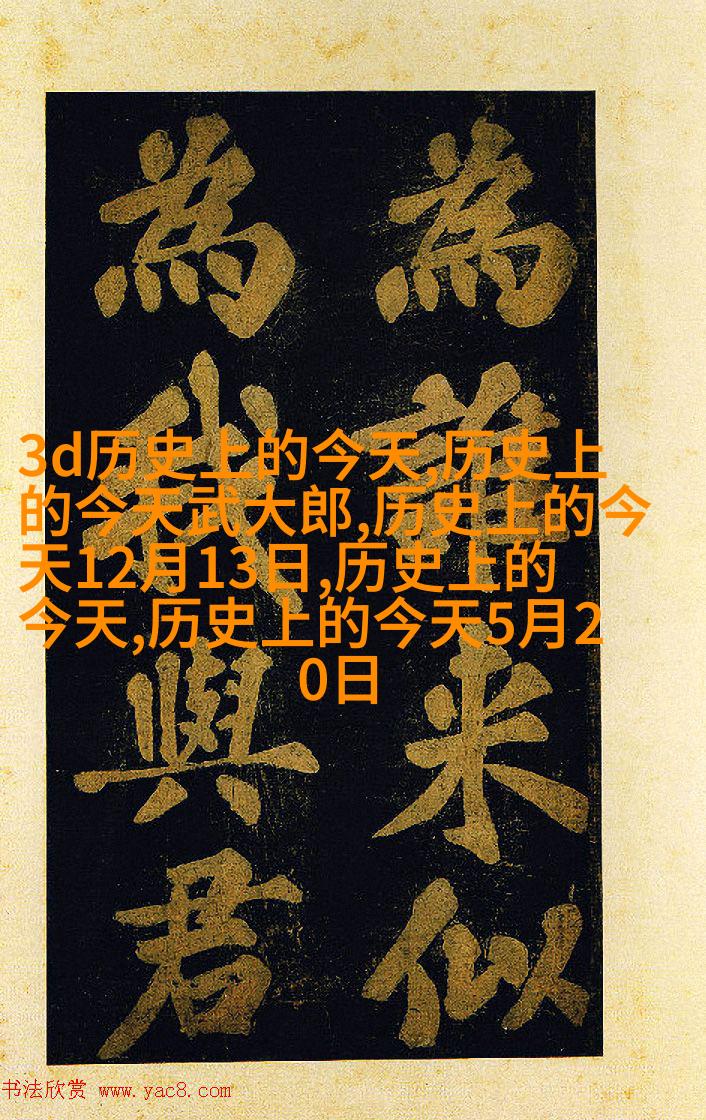 為誰来似
為我與君
3d历史上的今天,历史上
的今天武大郎,历史上的今
天12月13日,历史上的
今天,历史上的今天5月2
0日
书法欣赏 www.yac8.com